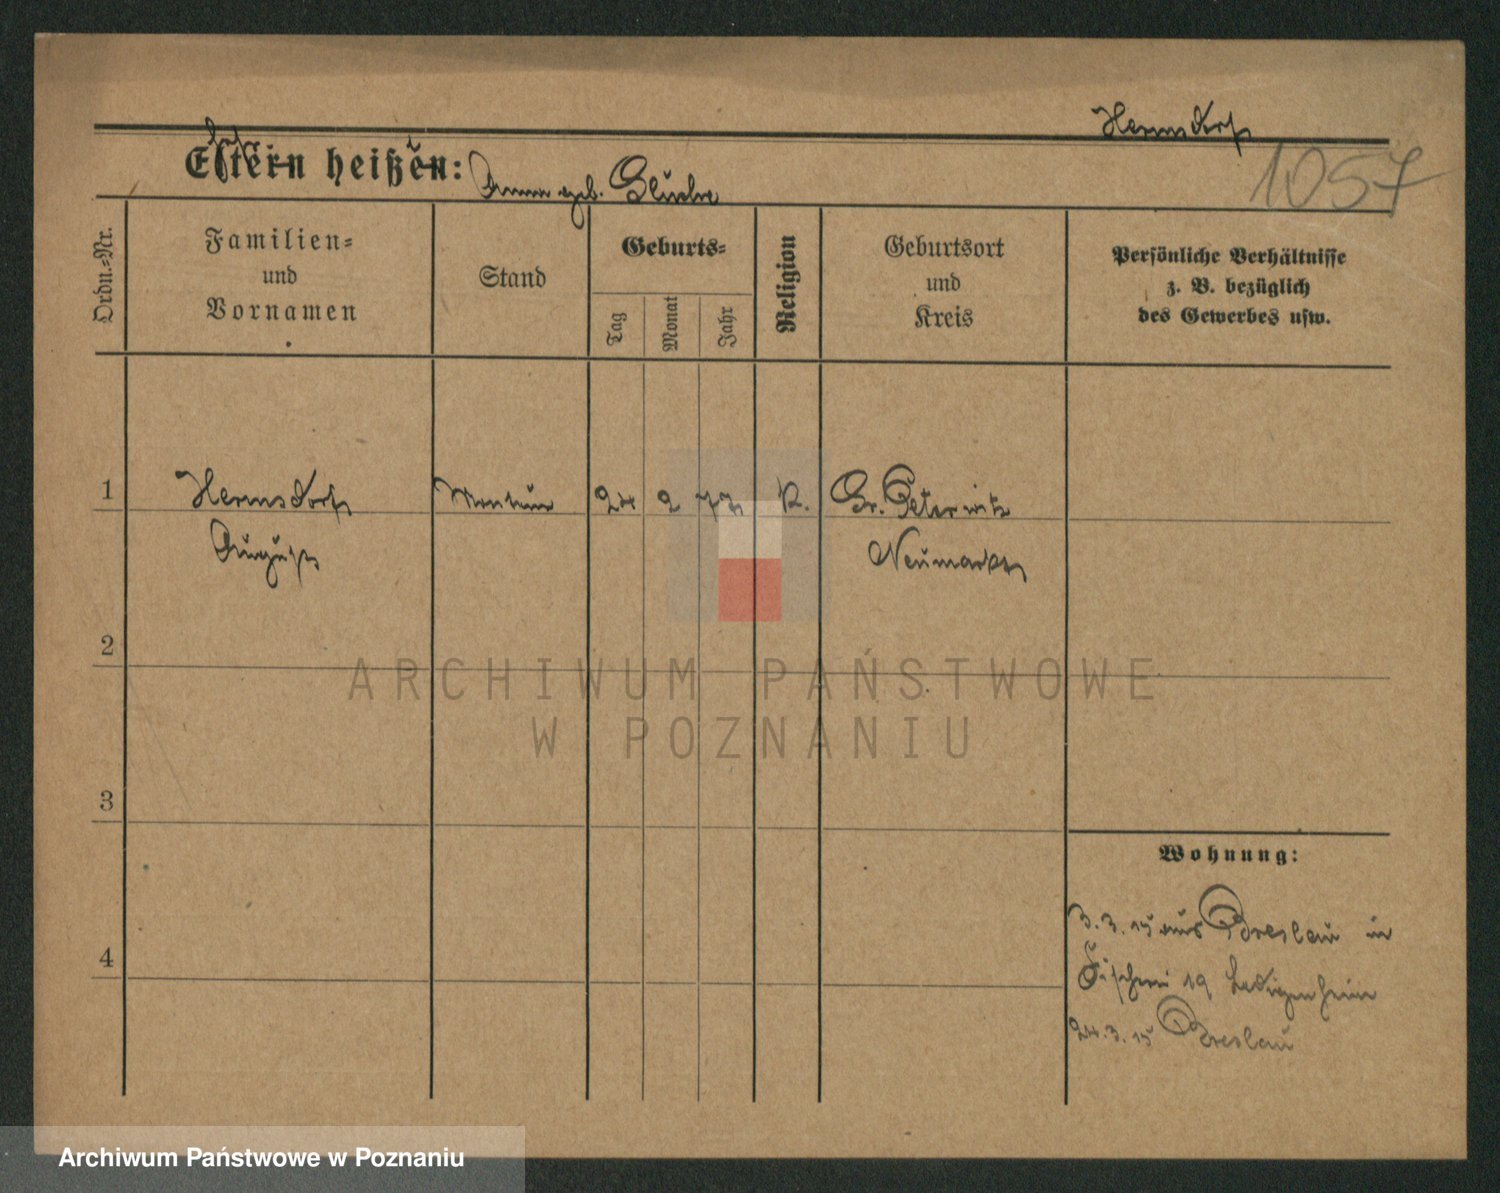 Hermsdorf
1057
Eltern heißen:
Anna geb.
Ordn.-Nr.
Familien-
und
Vornamen
Stand
Geburts-
Tag
Monat
Jahr
Religion
Geburtsort
und
Kreis
Persönliche Verhältnisse
z. B. bezüglich
des Gewerbes usw.
1
Hermsdorf
Monteur
24
2
77
K.
Gr. Peterwitz
August
Neumarkt
2
3
4
Wohnung:
3.3.15 aus Breslau in
Fischerei 19 Ledigenheim
24.3.15 Breslau
ARCHIWUM PAŃSTWOWE
W POZNANIU
Archiwum Państwowe w Poznaniu